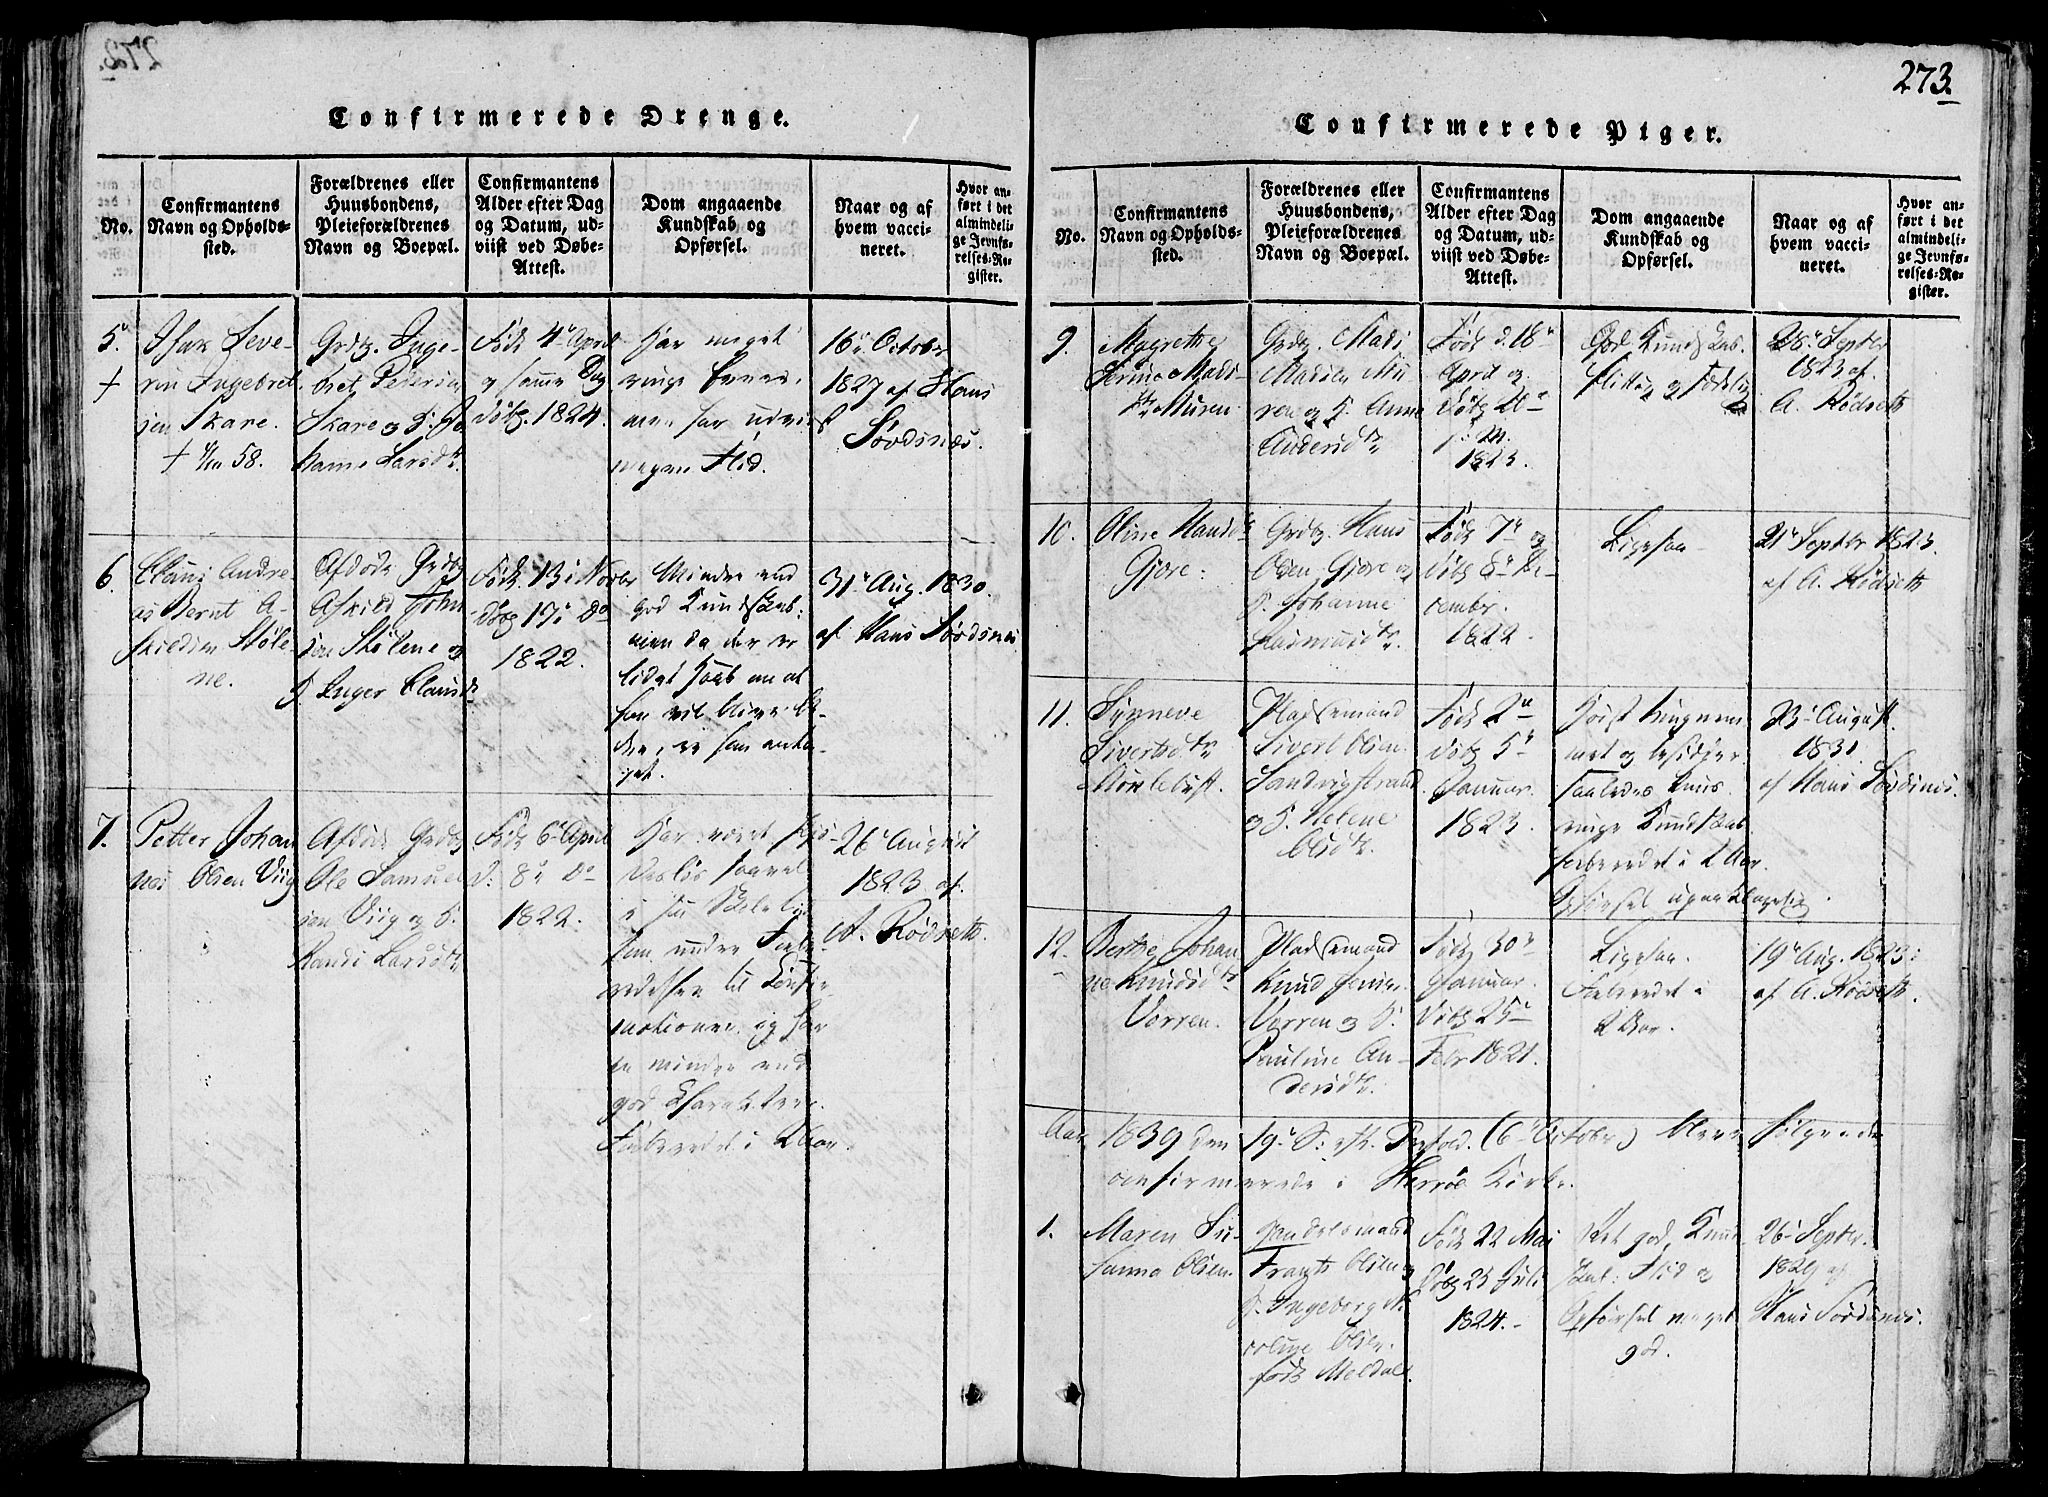 Confirmerede Drenge.
No.
Confirmantens
Navn og Opholds-
sted.
Forældrenes eller
Huusbondens,
Pleieforældrenes
Navn og Boepæl.
Confirmantens
Alder efter Dag
og Datum, ud-
viist ved Døbe-
Attest.
Dom angaaende
Kundskab og
Opførsel.
Naar og af
hvem vacci-
neret.
Hvor an-
ført i det
almindeli-
ge Jevnfø-
relses-Re-
gister.
5.
Isak Seve-
rin Ingebret
sen Skare.
58.
Grdbr. Inge-
bret Petersen
Skare og
hanne Larsdtr.
Født 4de April
og samme Dag
døbt. 1824.
Har meget
ringe Evner,
men har udvi
megen Flid.
16de October
1827 af Hans
Sørdsnæs.
6.
Claus Andre-
as Bernt A-
skildsen Støle-
ne.
Afdøde Grdbr
Askild John
sen Stølene og
H. Inger Clausdtr
Født 13de Novbr
døbt 17de Do
1822.
Mindre end
god Kundskab;
men da der er
lidet Haab om at
han vil blive be-
dre, er han anta-
get.
31te Aug. 1830.
af Hans Sørdsnæs
7.
Petter Johan
nes Olsen Viig
Afdøde Grdbr
Ole Samuel
sen Viig og H.
Randi Larsdtr
Født 6te April
D. 8de Do
1822.
Har været
saavel
i sin Skoletid
som under Forbe-
redelsen til Confir-
mationen, og har
mindre end
god Charakteer.
Forberedet i 2 Aar.
26de August
1823 af
A. Rødseth.
273.
Confirmerede Piger.
No.
Confirmantens
Navn og Opholds-
sted.
Forældrenes eller
Huusbondens,
Pleieforældrenes
Navn og Boepæl.
Confirmantens
Alder efter Dag
og Datum, ud-
viist ved Døbe-
Attest.
Dom angaaende
Kundskab og
Opførsel.
Naar og af
hvem vacci-
neret.
Hvor an-
ført i det
almindeli-
ge Jevnfø-
relses-Re-
gister.
9.
Magrethe
Serine Mads-
dtr Muren.
Grdbr. Mads
Madsen Mu-
ren og H. Anne
Andersdtr
Født d. 18de
April og
døbt 20de
s. M.
1823.
God Kundskab.
Flittig og
28de Septbr
1823 af
A. Rødseth
10.
Oline Hansdtr
Gjøre:
Grdbr. Hans
Olsen Gjøre og
H. Johanne
Rasmusdtr.
Født 7de og
døbt 8de De-
cembr.
1822.
Ligesaa
21de Septbr 1823.
af A. Rødseth
11.
Synneve
Sivertsdtr
Myklebust.
Pladsemand
Sivert Olsen
Sandvigstrand
og H. Helene
Olsdtr.
Født 2de
døbt 5te
Januar.
1823.
og besidder
saaledes kuns
ringe Kundskab
forberedet i 2 Aar.
Opførsel upaaklagelig.
23de August
1831
af Hans Sørdsnæs.
12.
Berthe Johan
ne Knudsdtr
Vorren.
Pladsemand
Knud Jensen
Vorren og H.
Pauline An-
dersdtr.
Født 30te
Januar.
døbt 25de
Febr 1821.
Ligesaa.
Forberedet i
2 Aar.
19de Aug. 1823:
af A. Rødseth.
Aar 1839 den 19de S: eft. Trefold. (6te October) bleve følgende
confirmerede i Herröe Kirke.
1.
Maren Su-
sanna Olsen.
Handelsmand
Frants Olsen og
H. Ingeborg Ni-
coline Olsen
født Meldal.
Født 22 Mai
Døbt 25 Juli
1824.
Ret god Kund-
skab: Flid og
Opførsel meget
god.
26de Septbr.
1829 af
Hans Sørdsnæs.